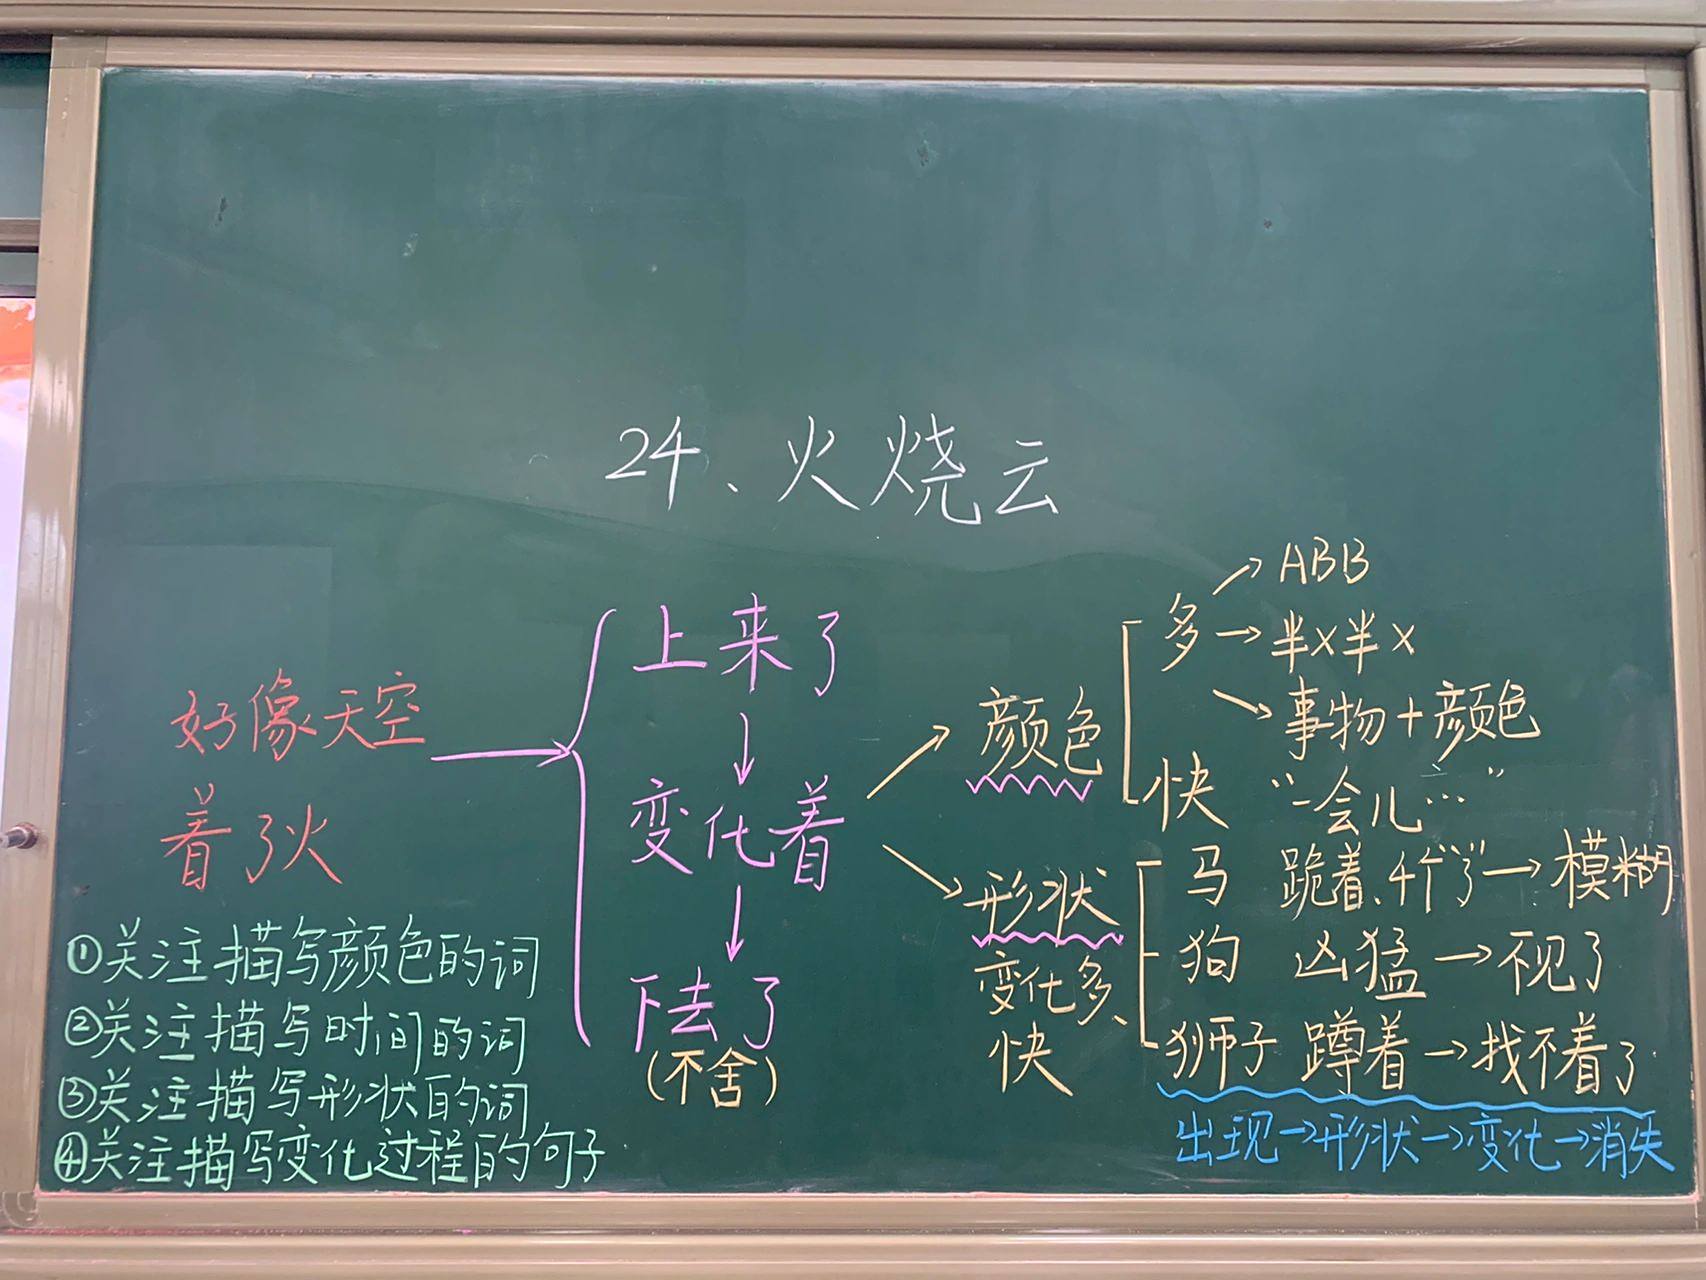 24、火烧云
好像天空
着了火
上来了
变化着
下去了
(不舍)
颜色
多
ABB
半X半X
事物+颜色
快 "一会儿…"
形状
变化多、
快
马 跪着、→模糊
狗 凶猛→不见了
狮子 蹲着→找不着了
出现→形状→变化→消失
①关注描写颜色的词
②关注描写时间的词
③关注描写形状的词
④关注描写变化过程的句子